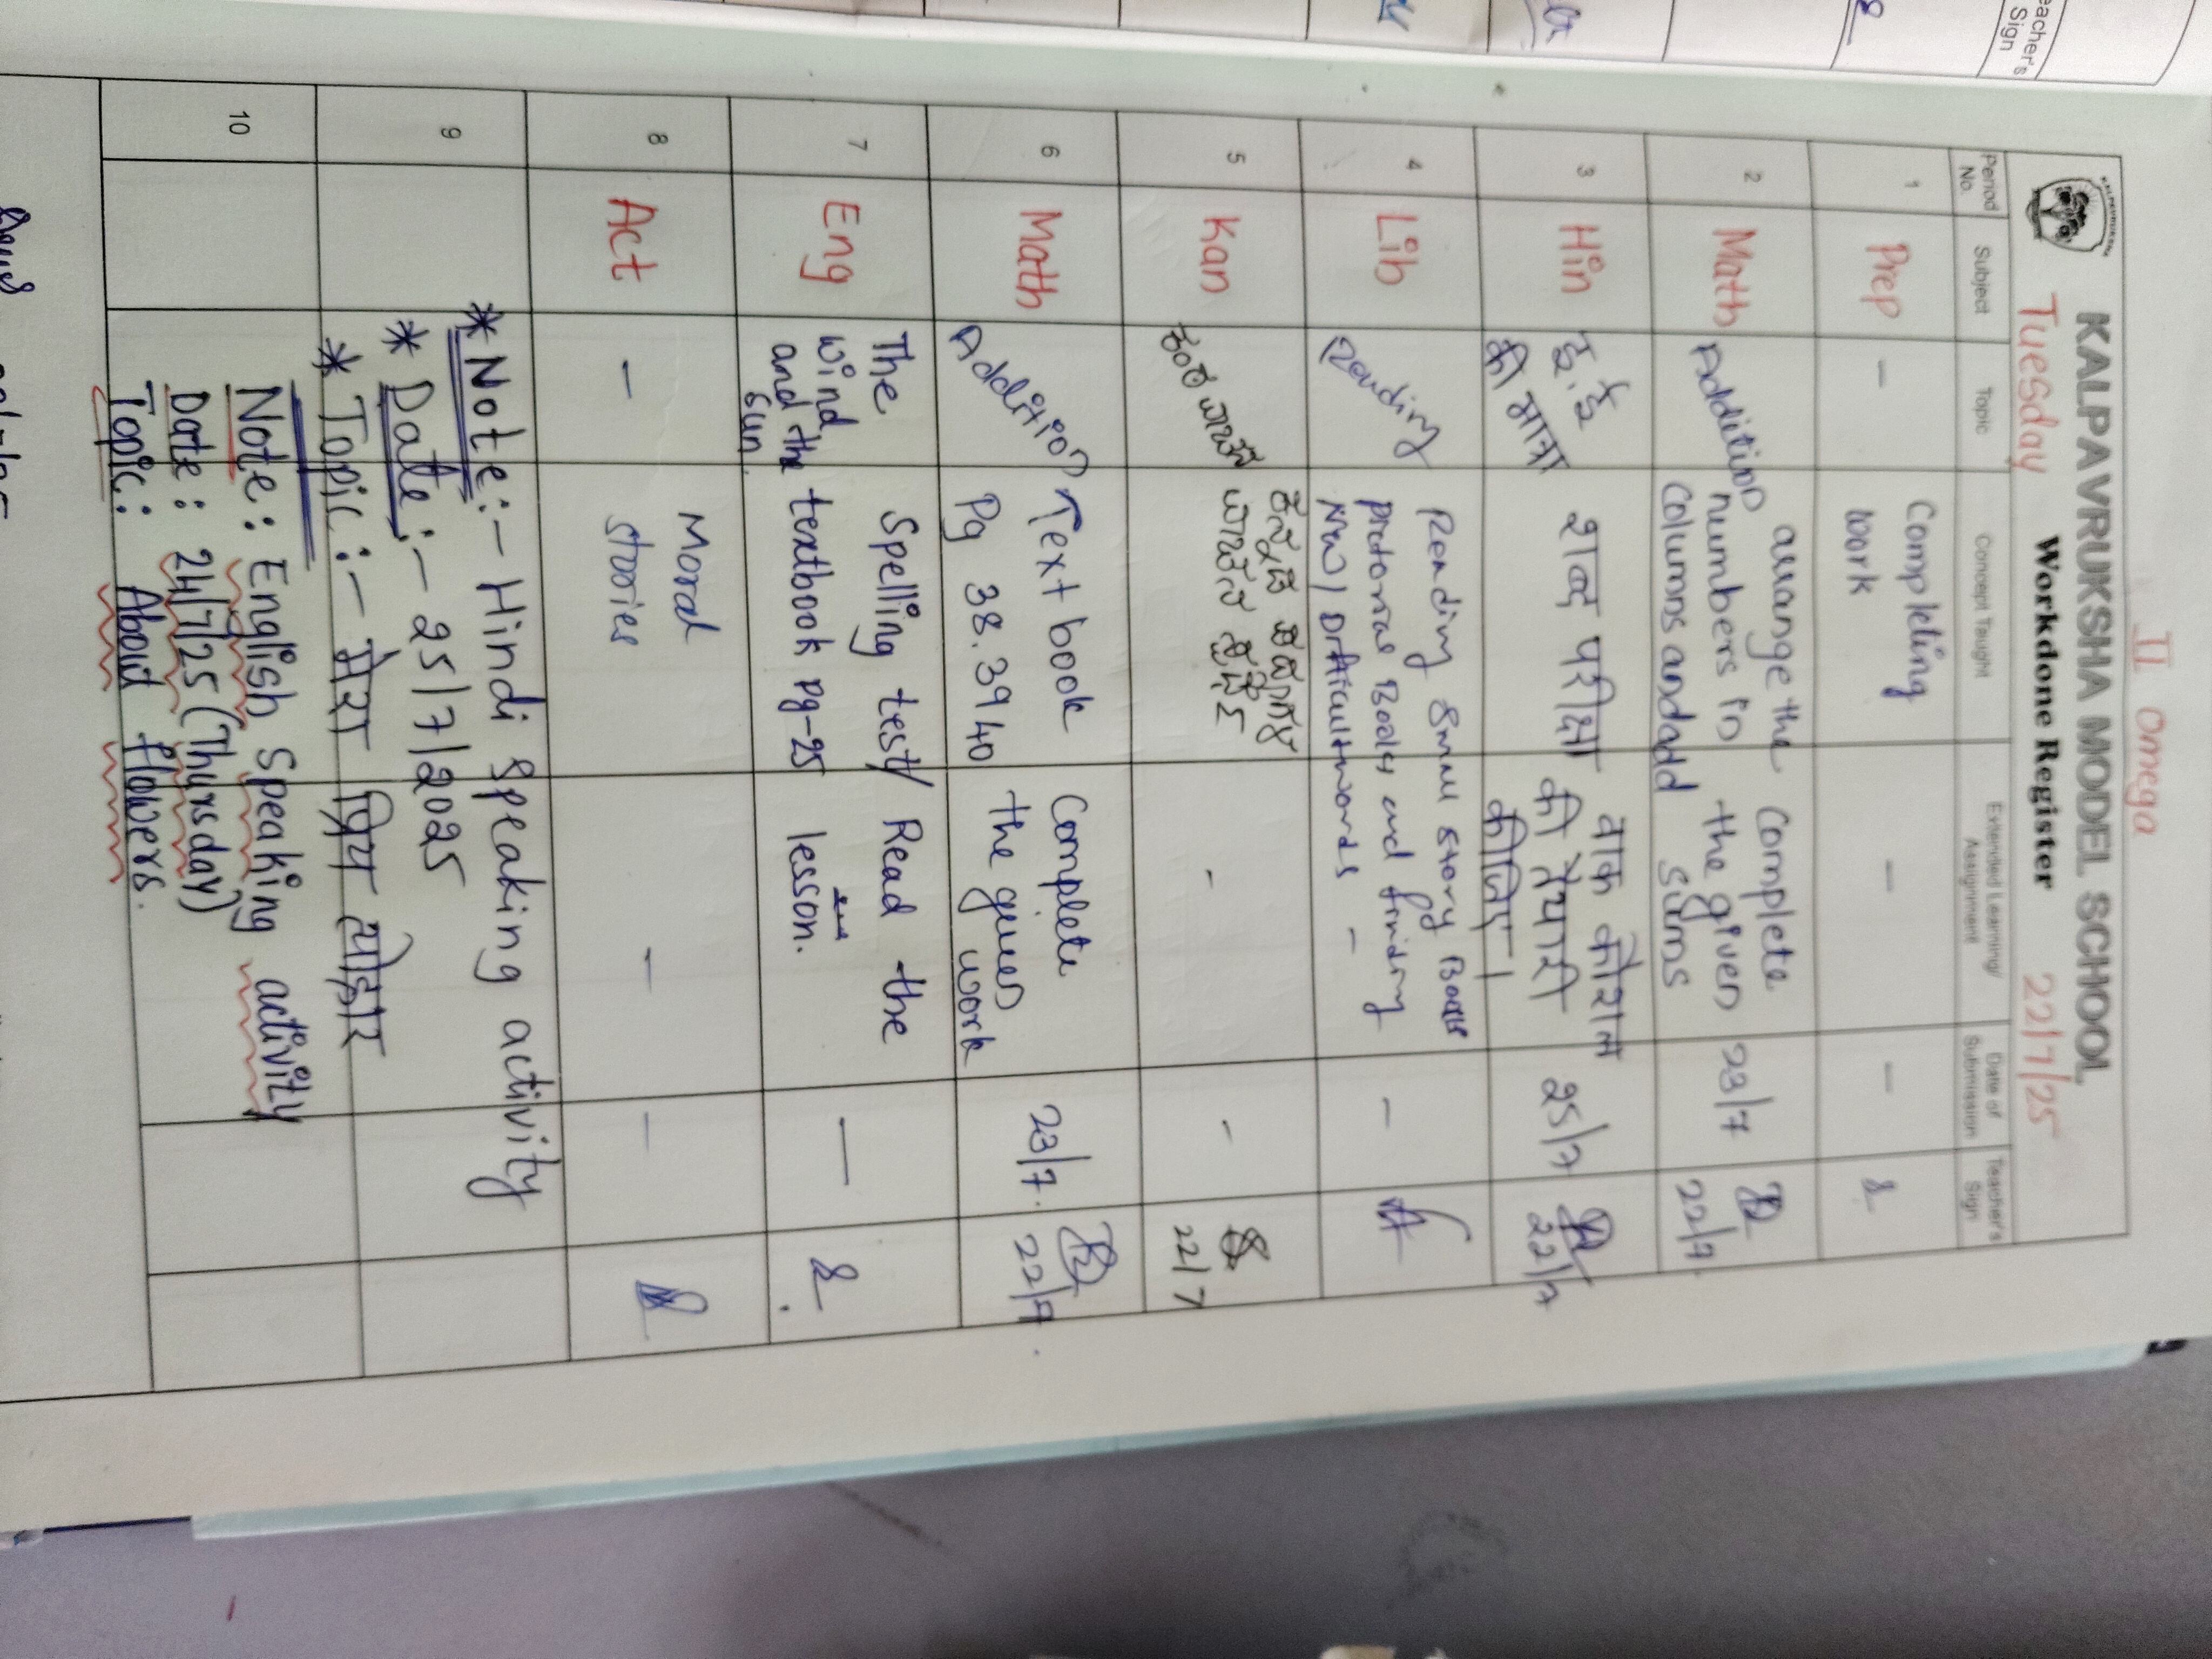 II Omega
KALPAVRUKSHA MODEL SCHOOL
Tuesday Workdone Register 22/7/25
Period No. Subject Topic Concept Taught Extended Learning/ Assignment Date of Submission Teacher's Sign
1 Prep - Completing work - -
2 Math Addition arrange the numbers in columns and add Complete the given sums 23/7 22/7
3 Hin इ, ई की मात्रा शब्द परीक्षा वाक कौशल की तैयारी कीजिए। 25/7 22/7
4 Lib Reading Reading Small story Books and finding NW/Difficult words - -
5 Kan - - 22/7
6 Math Addition Text book Pg 38.39 40 Complete the given work 23/7. 22/7
7 Eng The wind and the sun. Spelling test/ textbook pg-25 Read the lesson. —
8 Act - Moral stories - -
9
* Note:- Hindi speaking activity
* Date:- 25/7/2025
* Topic:- मेरा प्रिय त्योहार
10
Note: English Speaking activity
Date: 24/7/25 (Thursday)
Topic: About flowers.
Teacher's Sign